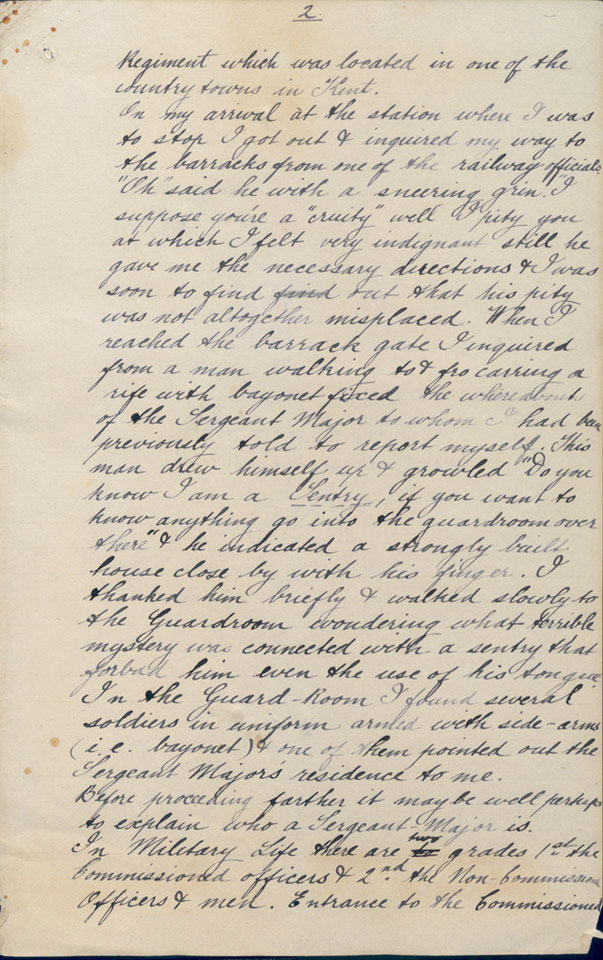 2
Regiment which was located in one of the
country towns in Kent.
On my arrival at the station where I was
to stop I got out & inquired my way to
the barracks from one of the railway officials
"Oh" said he with a sneering grin. "I
suppose you're a "cruity" well I pity you
at which I felt very indignant still he
gave me the necessary directions & I was
soon to find find out that his pity
was not altogether misplaced. When I
reached the barrack gate I inquired
from a man walking to & fro carrying a
rife with bayonet fixed the whereabouts
of the Sergeant Major to whom I had been
previously told to report myself. This
man drew himself up & growled "Do you
know I am a Sentry, if you want to
know anything go into the guardroom over
there" & he indicated a strongly built
house close by with his finger. I
thanked him briefly & walked slowly to
the Guardroom wondering what terrible
mystery was connected with a sentry that
forbad him even the use of his tongue
In the Guard-Room I found several
soldiers in uniform armed with side-arms
(i.e. bayonet) & one of them pointed out the
Sergeant Major's residence to me.
Before proceeding farther it may be well perhaps
to explain who a Sergeant-Major is.
In Military Life there are two grades 1st the
Commissioned officers & 2nd the Non-Commissioned
Officers & men. Entrance to the Commissioned